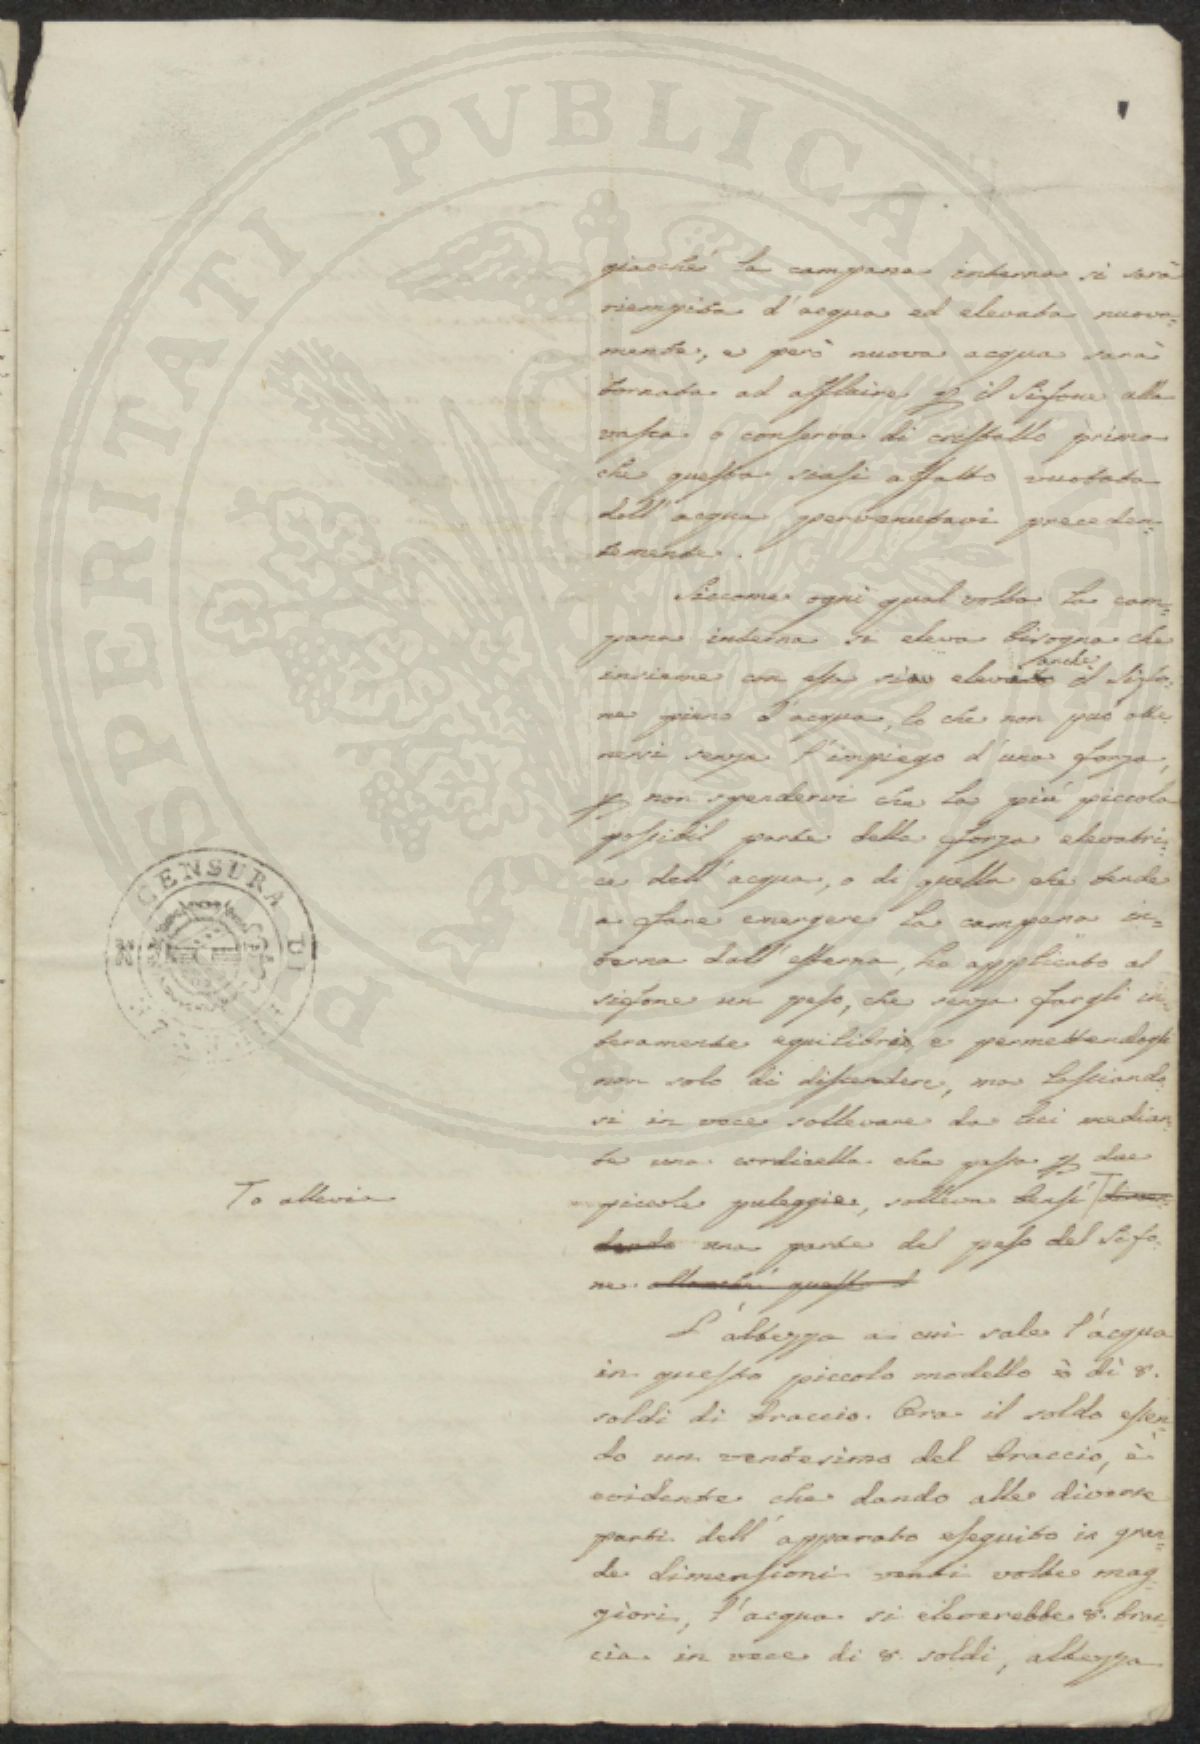 giacchè la campana interna si sarà
riempita d'acqua ed elevata nuova-
mente, e però nuova acqua sarà
tornata ad affluire p il Sifone alla
vasca o conserva di cristallo prima
che questa siasi affatto vuotata
dell'acqua pervenutavi preceden-
temente.
Siccome ogni qual volta la cam-
pana interna si eleva bisogna che
insieme con essa si elevi anche il Sifo-
ne pieno d'acqua, lo che non può otte-
nersi senza l'impiego d'una forza,
p non spendervi che la più piccola
possibil parte della forza elevatri-
ce dell'acqua, o di quella che tende
a fare emergere la campana in-
terna dall'esterna, ha applicato al
sifone un peso, che senza fargli in-
teramente equilibrio, e permettendogli
non solo di discendere, ma lasciando-
si in vece sollevare da lui median-
te una cordicella che passa p due
piccole puleggie, solleva bensì
T o allevia
una parte del peso del Sifo-
ne
L'altezza a cui sale l'acqua
in questo piccolo modello è di 8.
soldi di braccio. Ora il soldo essen-
do un ventesimo del braccio, è
evidente che dando alle diverse
parti dell'apparato eseguito in gran-
de dimensioni venti volte mag-
giori, l'acqua si eleverebbe 8. brac-
cia in vece di 8. soldi, altezza
CENSURA DI
PROSPERITATI PVBLICAE AVGENDAE